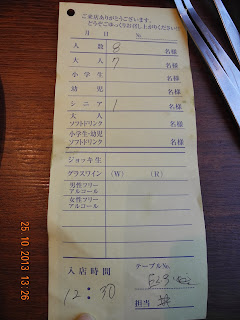 ご来店ありがとうございます。
どうぞごゆっくりお召し上がりください!!
月 日 №
人数 8 名様
大人 7 名様
小学生 名様
幼児 名様
シニア 1 名様
大人
ソフトドリンク 名様
小学生・幼児
ソフトドリンク 名様
ジョッキ生
グラスワイン (W) (R)
男性フリー
アルコール
女性フリー
アルコール
入店時間 テーブル№
12:30
担当
25 10 2013 13:26